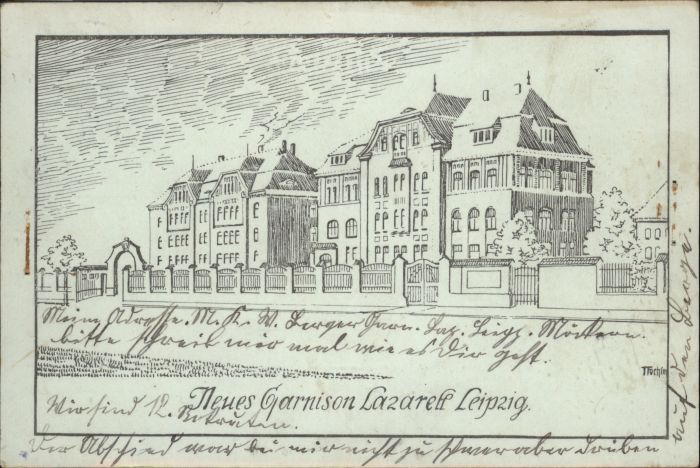 Meine Adrosse. M. K. W. Berger Garn. Laz. Leipz. Möckern.
bitte schreib mir mal wie es dir geht.
Neues Garnison Lazarett Leipzig.
Wir sind 12. Rekruten.
Der Abschied war bei mir nicht zu schwer aber drüben
auf den